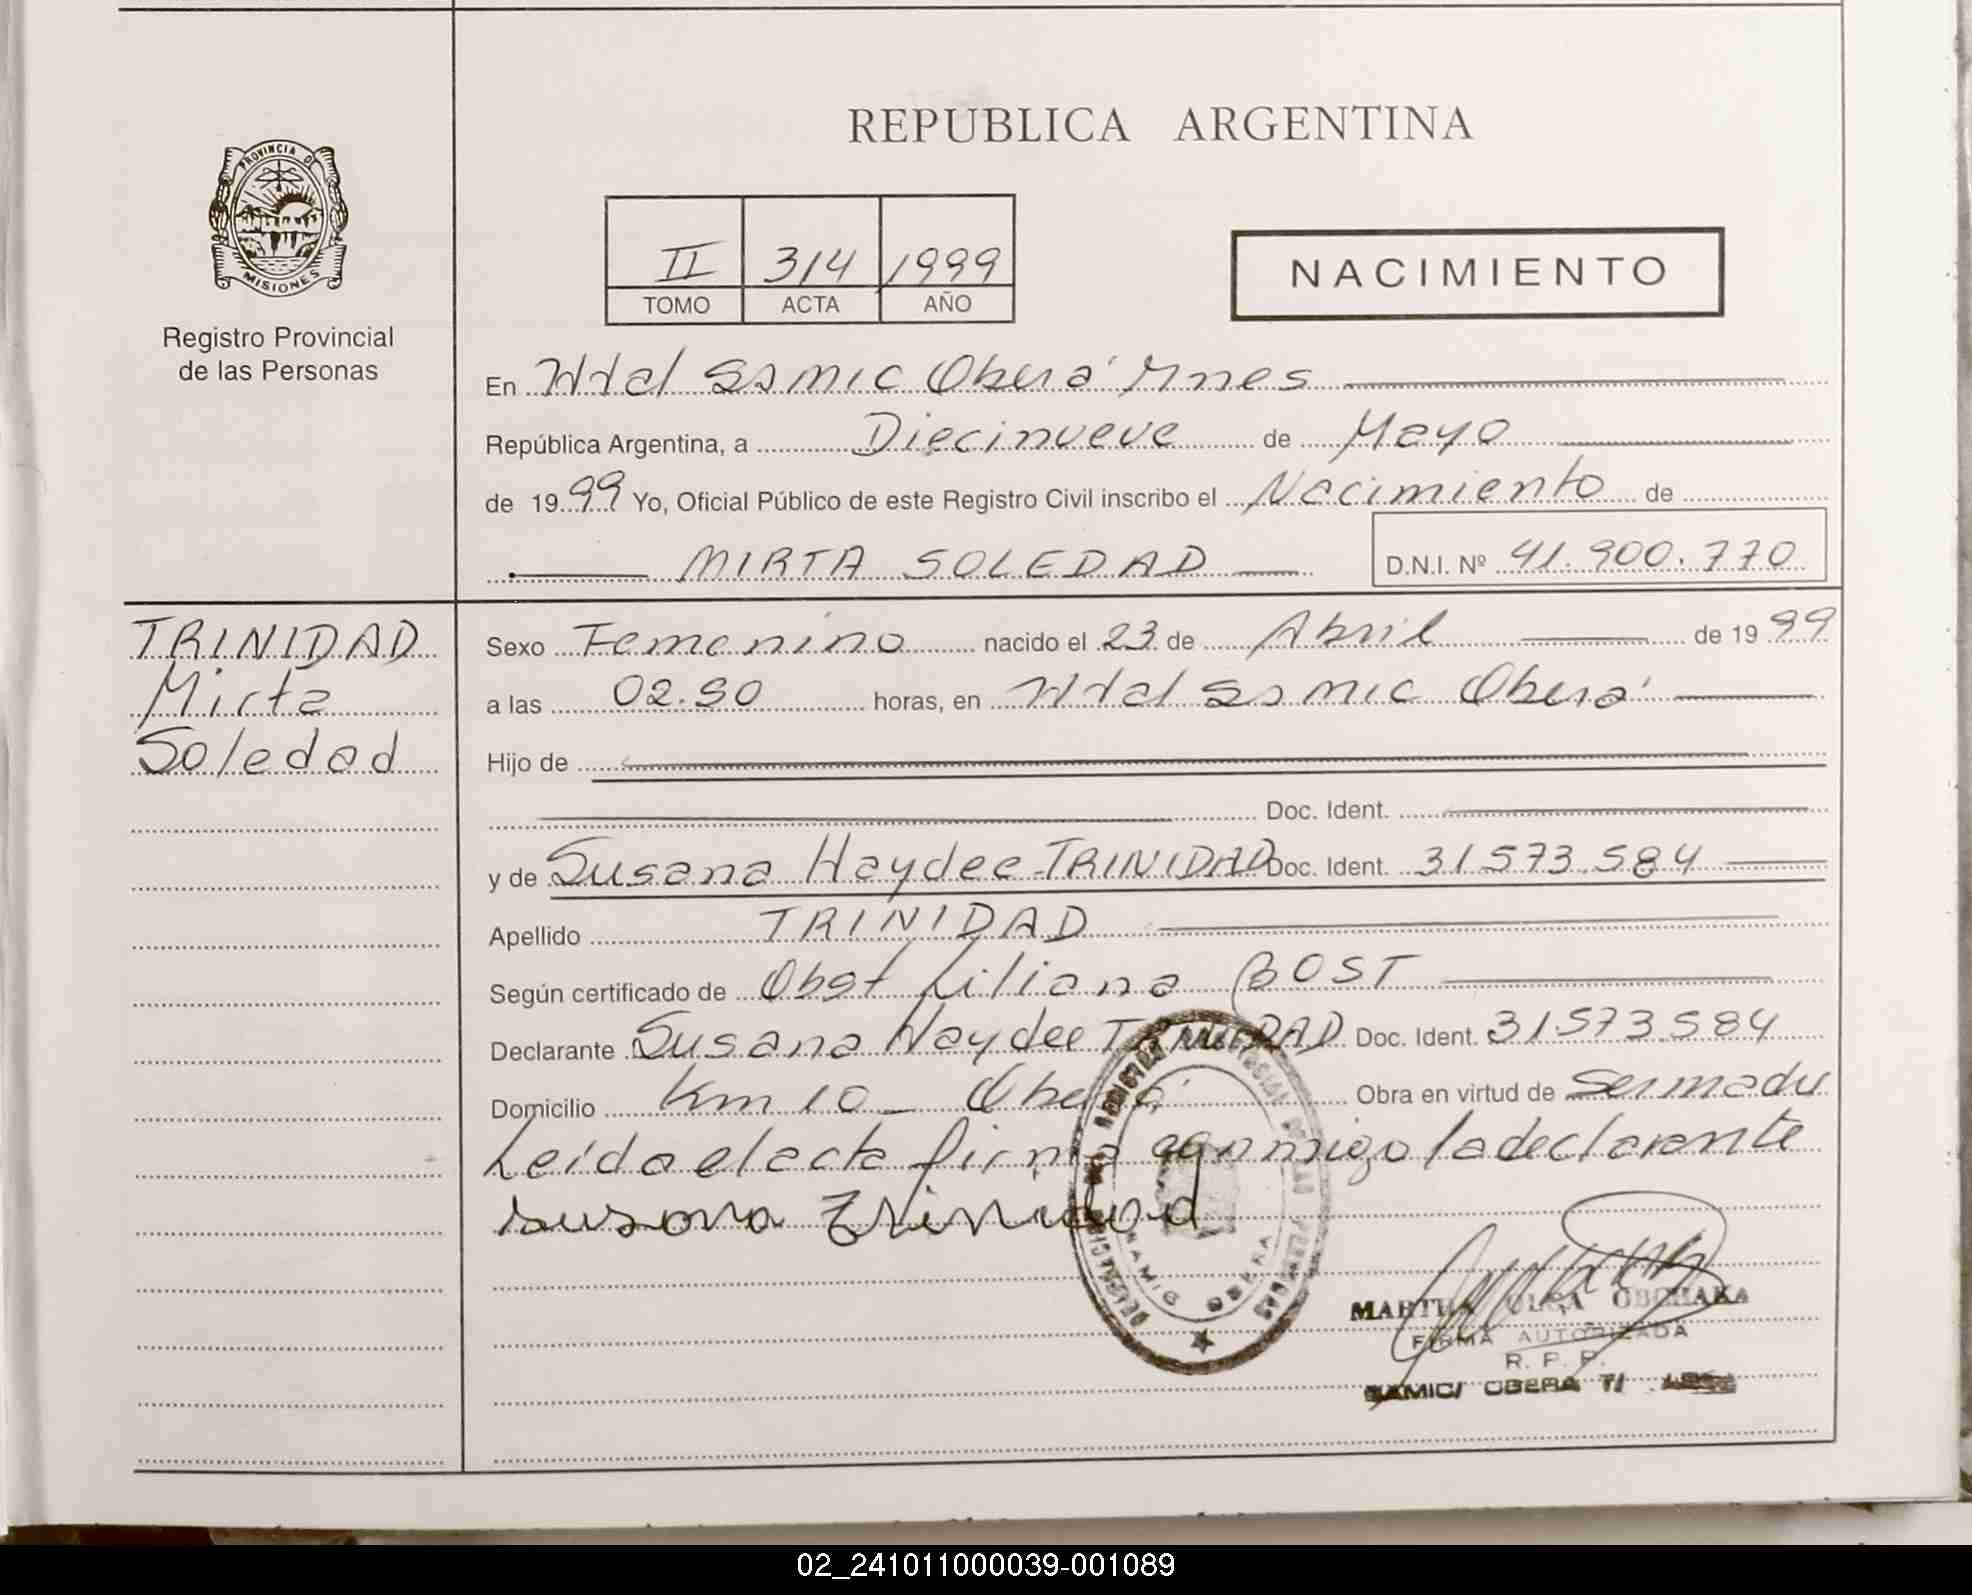 REPUBLICA ARGENTINA
PROVINCIA DE MISIONES
Registro Provincial
de las Personas
II 314 1999
TOMO ACTA AÑO
NACIMIENTO
En Htal Samic Oberá Mnes
República Argentina, a Diecinueve de Mayo
de 1999 Yo, Oficial Público de este Registro Civil inscribo el Nacimiento de
MIRTA SOLEDAD D.N.I. Nº 41.900.770
TRINIDAD
Mirta
Soledad
Sexo Femenino nacido el 23 de Abril de 1999
a las 02.30 horas, en Htal Samic Oberá
Hijo de
Doc. Ident.
y de Susana Haydee TRINIDAD Doc. Ident. 31.573.584
Apellido TRINIDAD
Según certificado de Obst Liliana BOST
Declarante Susana Haydee TRINIDAD Doc. Ident. 31.573.584
Domicilio Km 10 _ Oberá Obra en virtud de ser madre
Leída el acta firma conmigo la declarante
Susana Trinidad
MARTHA OLGA
FIRMA AUTORIZADA
R. P. P.
SAMIC/ OBERA T/
SAMIC OBERA
02_241011000039-001089